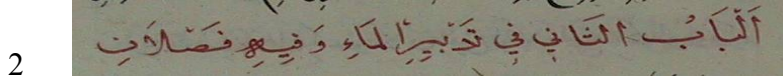 2
اَلْبَابُ الثَّانِي فِي تَدْبِيرِ الْمَاءِ وَفِيهِ فَصْلَانِ